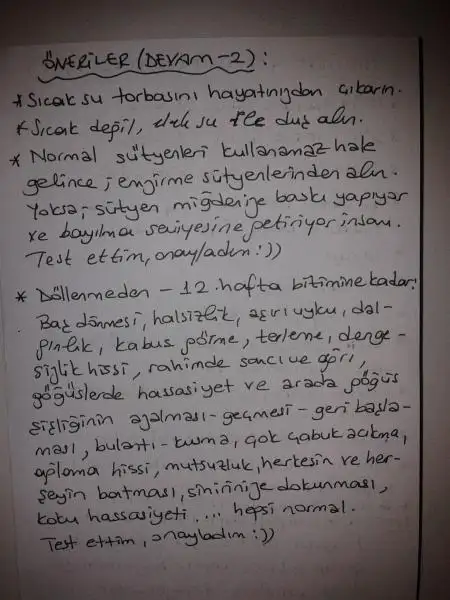 ÖNERİLER (DEVAM-2):
* Sıcak su torbasını hayatınızdan çıkarın.
* Sıcak değil, ılık su ile duş alın.
* Normal sütyenleri kullanamaz hale
gelince; emzirme sütyenlerinden alın.
Yoksa; sütyen midenize baskı yapıyor
ve bayılma seviyesine getiriyor insanı.
Test ettim, onayladım :))
* Döllenmeden - 12. hafta bitimine kadar;
Baş dönmesi, halsizlik, aşırı uyku, dal-
gınlık, kabus görme, terleme, denge-
sizlik hissi, rahimde sancı ve ağrı,
göğüslerde hassasiyet ve arada göğüs
şişliğinin azalması - geçmesi - geri başla-
ması, bulantı - kusma, çok çabuk acıkma,
ağlama hissi, mutsuzluk, herkesin ve her-
şeyin batması, sinirinize dokunması,
koku hassasiyeti .... hepsi normal.
Test ettim, onayladım :))